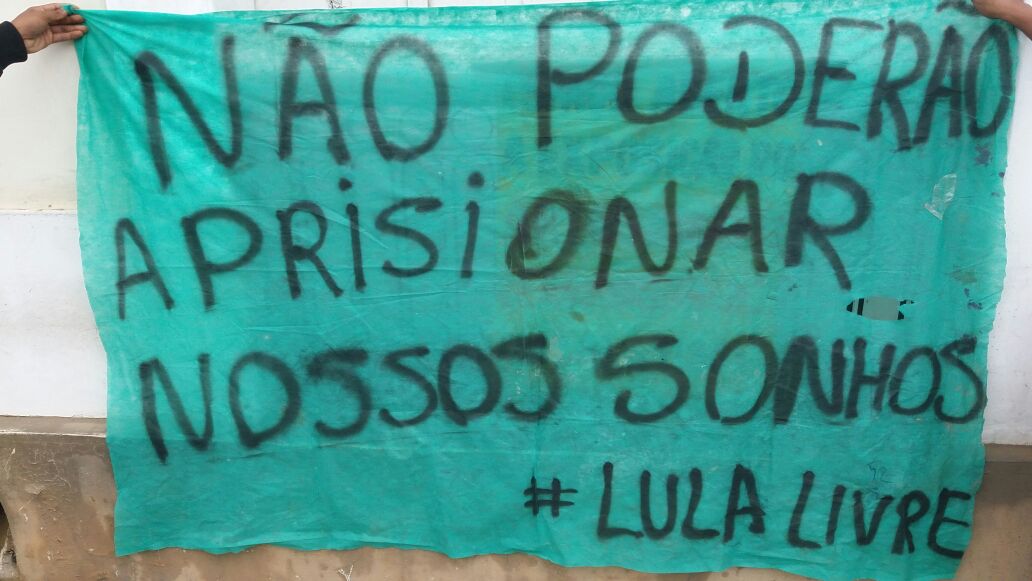 NÃO PODERÃO
APRISIONAR
NOSSOS SONHOS
# LULA LIVRE